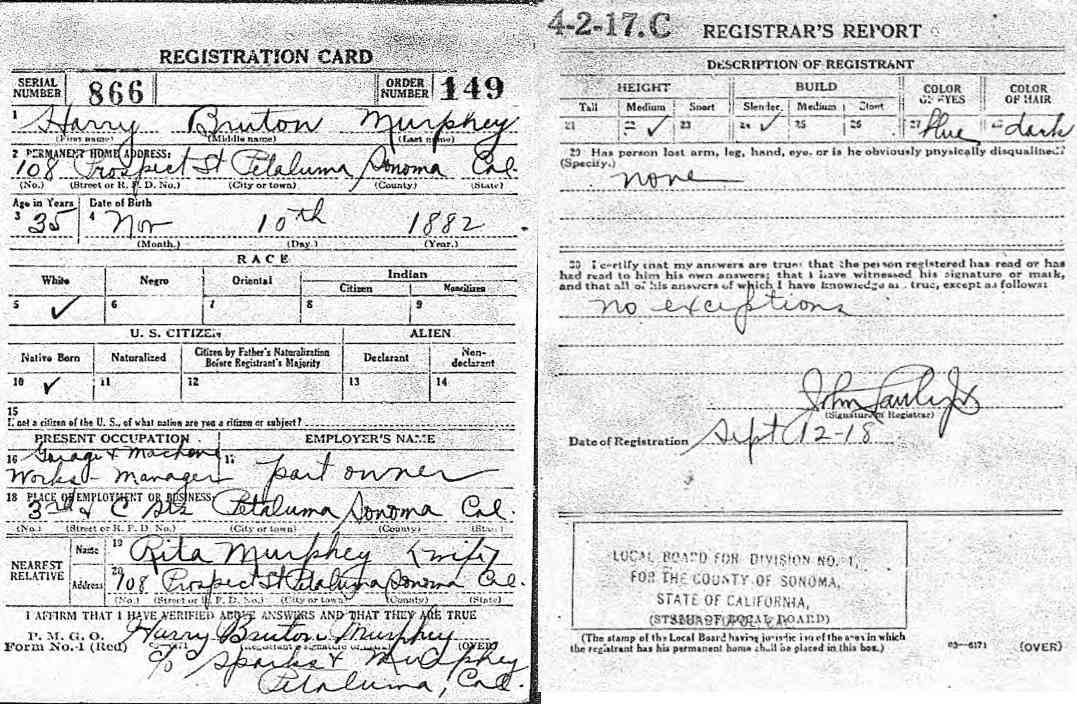 REGISTRATION CARD
SERIAL NUMBER 866 ORDER NUMBER 149
1 Harry Bruton Murphey
(First name) (Middle name) (Last name)
2 PERMANENT HOME ADDRESS:
108 Prospect St Petaluma Sonoma Cal.
(No.) (Street or R. F. D. No.) (City or town) (County) (State)
Age in Years Date of Birth
3 35 4 Nov 10th 1882
(Month.) (Day.) (Year.)
RACE
White Negro Oriental Indian
Citizen Noncitizen
5 ✓ 6 7 8 9
U. S. CITIZEN ALIEN
Native Born Naturalized Citizen by Father's Naturalization Before Registrant's Majority Declarant Non-declarant
10 ✓ 11 12 13 14
15
If not a citizen of the U. S., of what nation are you a citizen or subject?
PRESENT OCCUPATION EMPLOYER'S NAME
16 Garage & Machine 17
Works - Manager part owner
18 PLACE OF EMPLOYMENT OR BUSINESS:
3rd & C Sts Petaluma Sonoma Cal.
(No.) (Street or R. F. D. No.) (City or town) (County) (State)
NEAREST RELATIVE
Name 19 Rita Murphey (wife)
Address 20 108 Prospect St Petaluma Sonoma Cal.
(No.) (Street or R. F. D. No.) (City or town) (County) (State)
I AFFIRM THAT I HAVE VERIFIED ABOVE ANSWERS AND THAT THEY ARE TRUE
P. M. G. O.
Form No. 1 (Red) Harry Bruton Murphey
(Registrant's signature or mark) (OVER)
c/o Sparks & Murphey
Petaluma, Cal.
4-2-17. C REGISTRAR'S REPORT
DESCRIPTION OF REGISTRANT
HEIGHT BUILD COLOR OF EYES COLOR OF HAIR
Tall Medium Short Slender Medium Stout
21 22 ✓ 23 24 ✓ 25 26 27 blue 28 dark
29 Has person lost arm, leg, hand, eye, or is he obviously physically disqualified?
(Specify.)
none
30 I certify that my answers are true; that the person registered has read or has
had read to him his own answers; that I have witnessed his signature or mark,
and that all of his answers of which I have knowledge are true, except as follows:
no exceptions
John
(Signature of Registrar)
Date of Registration Sept 12-18
LOCAL BOARD FOR DIVISION NO. 1,
FOR THE COUNTY OF SONOMA,
STATE OF CALIFORNIA,
(STAMP OF LOCAL BOARD)
(The stamp of the Local Board having jurisdiction of the area in which
the registrant has his permanent home shall be placed in this box.)
03-6171 (OVER)